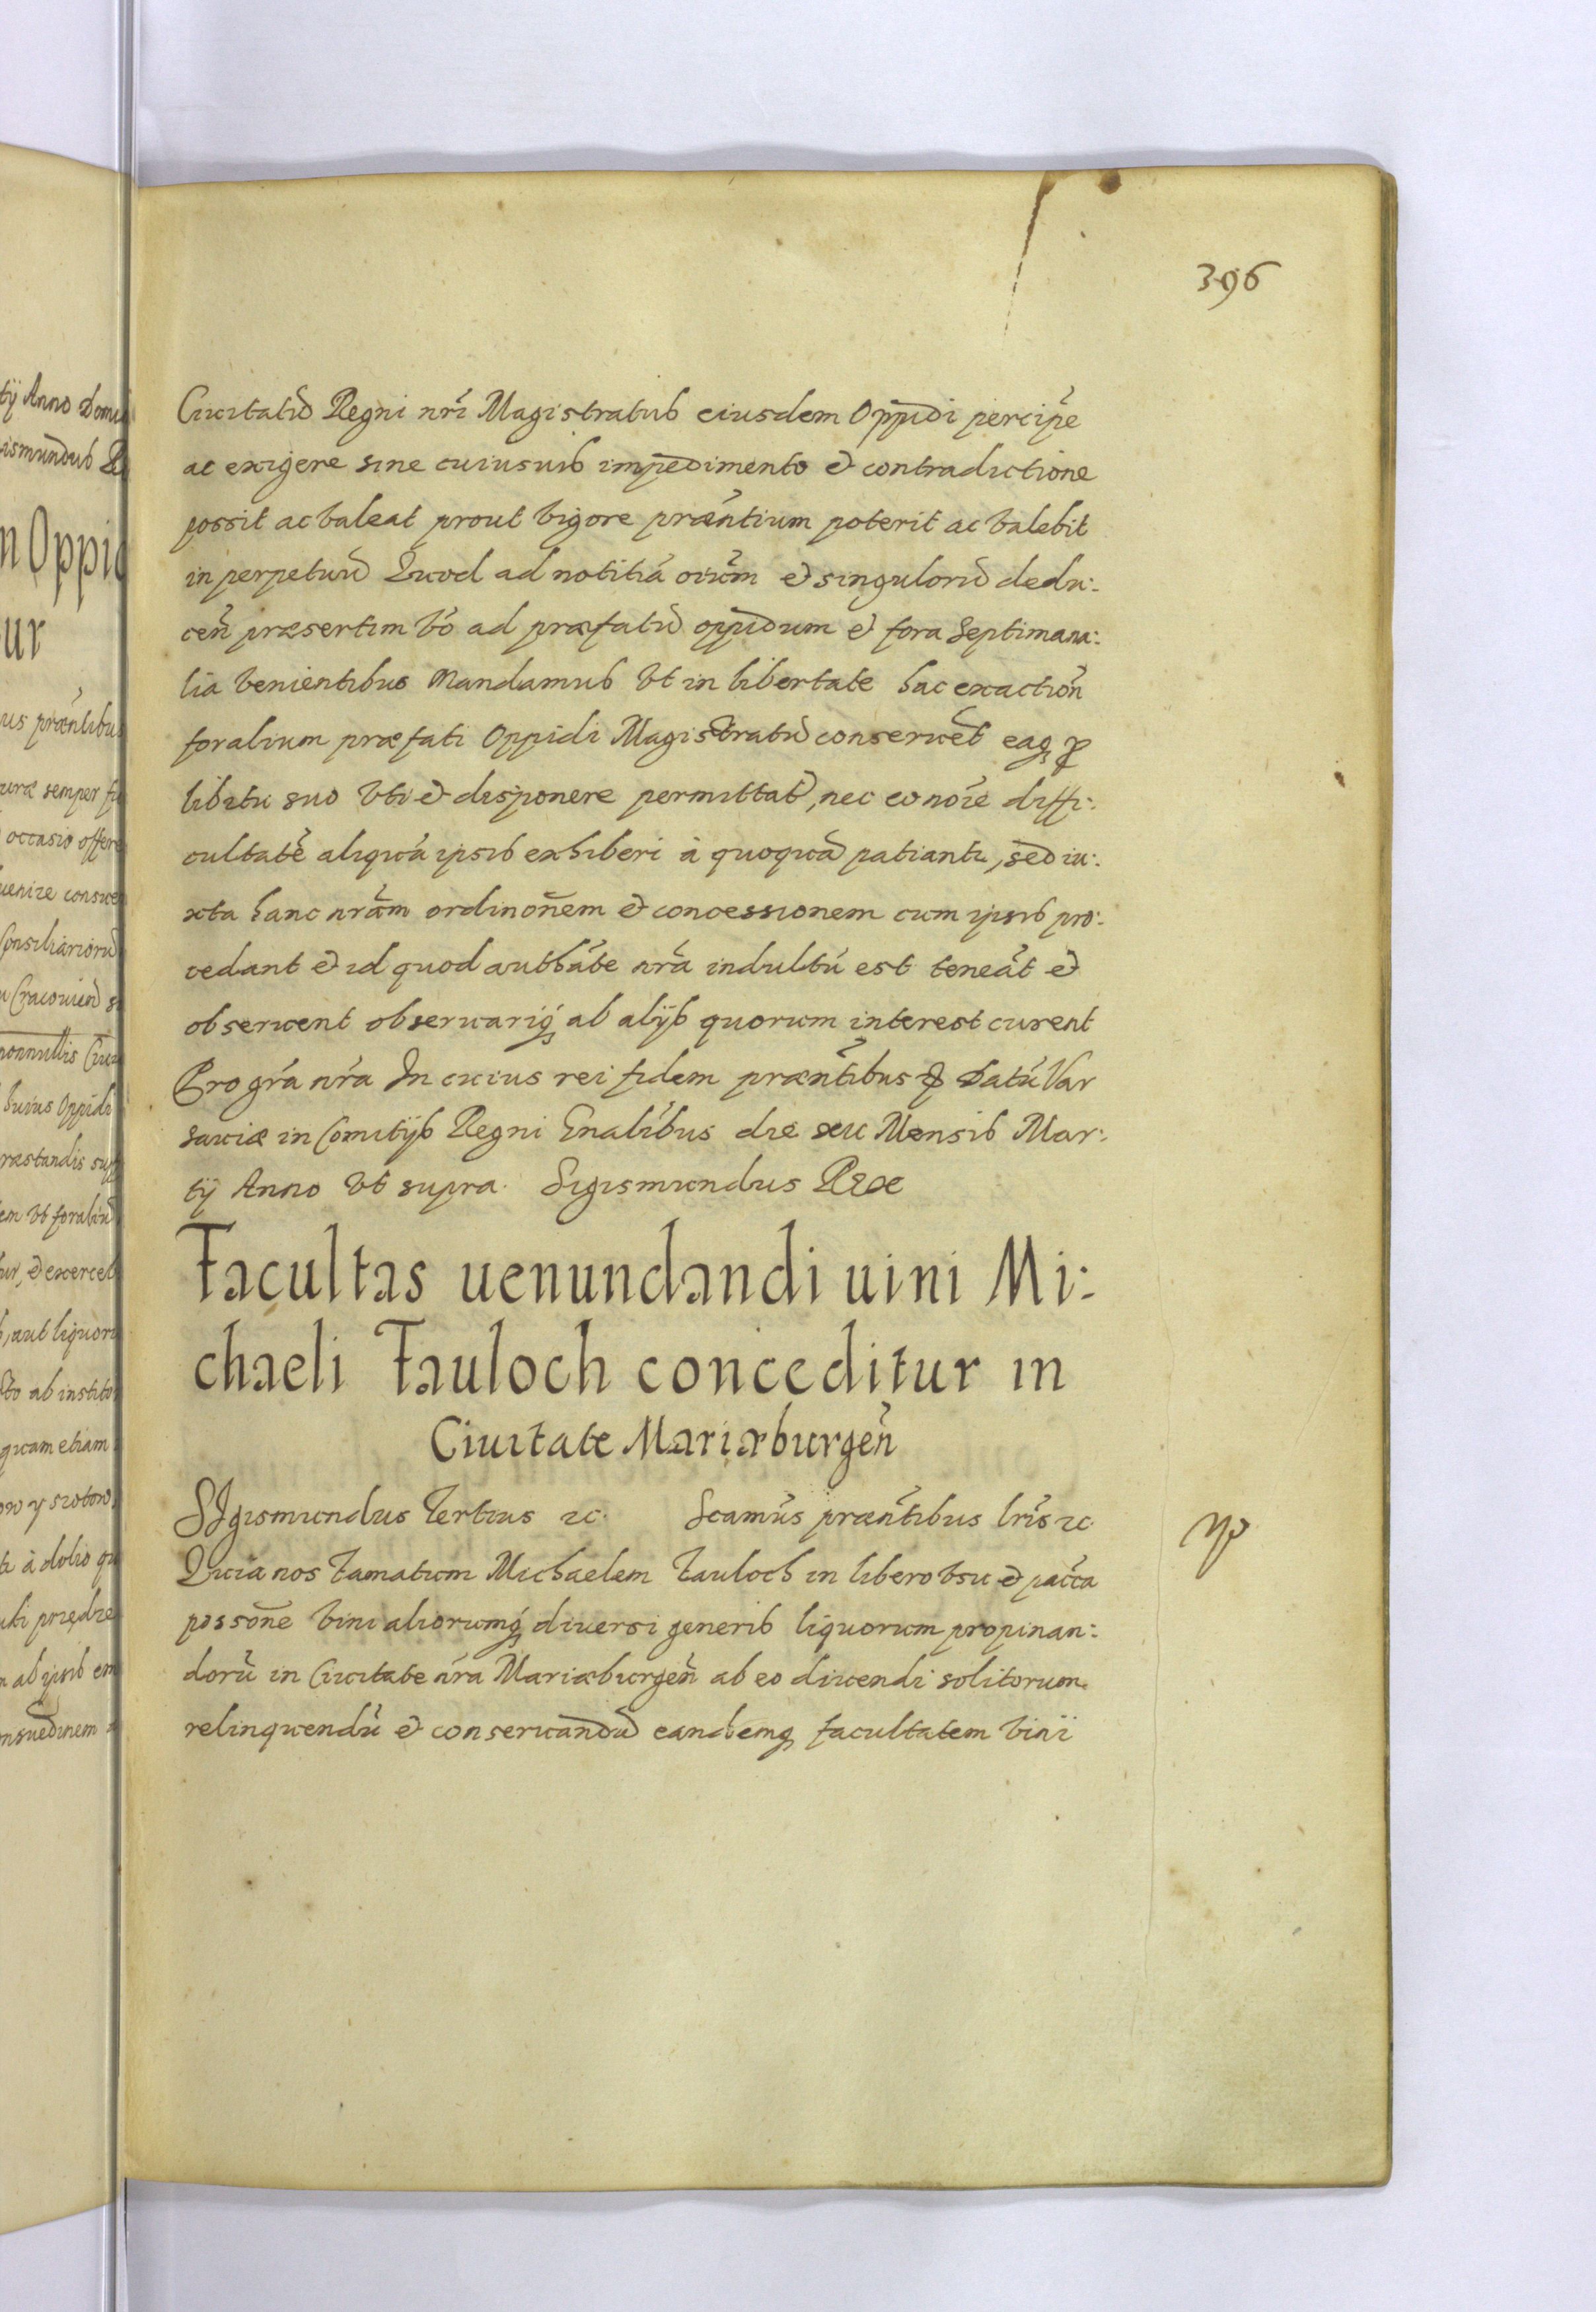 396
Ciuitatũ Regni nr̃i Magistratus eiusdem Oppidi percipẽ
ac exigere sine cuiusuis impedimento et contradictione
possit ac valeat prout vigore præñtium poterit ac valebit
in perpetuũ Quod ad notitiã oĩum et singulorũ dedu:
ceñ præsertim võ ad præfatũ oppidum et fora Septimana:
lia venientibus Mandamus Vt in libertate hac exactioñ
foralium præfati Oppidi Magistratũ conseruẽt eaq₃ ꝓ
libitu suo Vti et disponere permittãt, nec eo noĩe diffi:
cultatẽ aliquã ipsis exhiberi à quoquã patiantr, sed iu:
xta hanc nrãm ordinoñem et concessionem cum ipsis pro:
cedant et id quod authãte nrã indultũ est teneãt et
obseruent obseruariq₃ ab alijs quorum interest curent
Pro grã nrã In cuius rei fidem præñtibus ꝓ Datũ Var
sauiæ in Comitijs Regni Gnalibus die xiv Mensis Mar:
tij Anno Vt supra. Sigismundus Rex
Facultas uenundandi uini Mi:
chaeli Tauloch conceditur in
Ciuitate Mariæburgeñ
SIgismundus Tertius ꝛc. Scamũs præñtibus lr̃is ꝛc.
Quia nos famatum Michaelem Tauloch in libero vsu et paccã
possoñe vini aliorumq₃ diuersi generis liquorum propinan:
dorũ in Ciuitate nr̃a Mariæburgeñ ab eo diuendi solitorum
relinquendũ et conseruandũ eandemq₃ facultatem vini